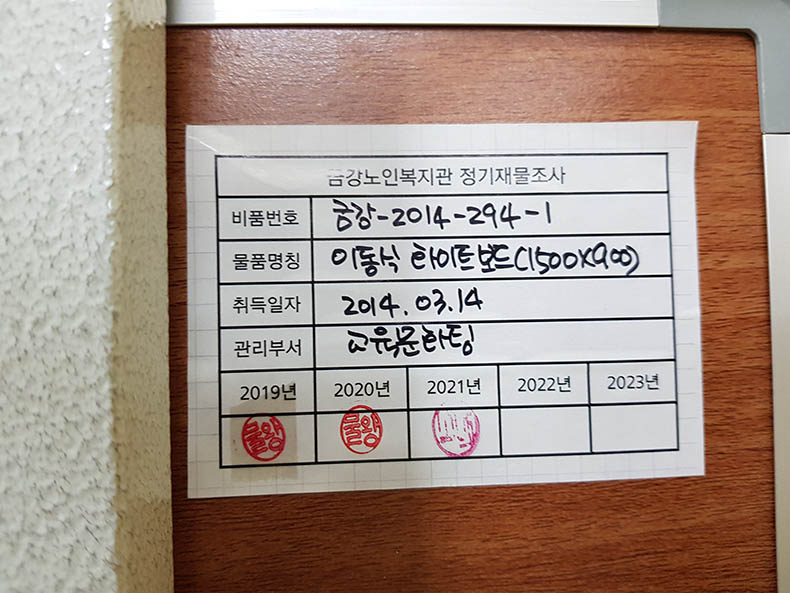 금강노인복지관 정기재물조사
비품번호 금강-2014-294-1
물품명칭 이동식 화이트보드(1500X900)
취득일자 2014.03.14
관리부서 교육문화팀
2019년 2020년 2021년 2022년 2023년
물왕 물왕